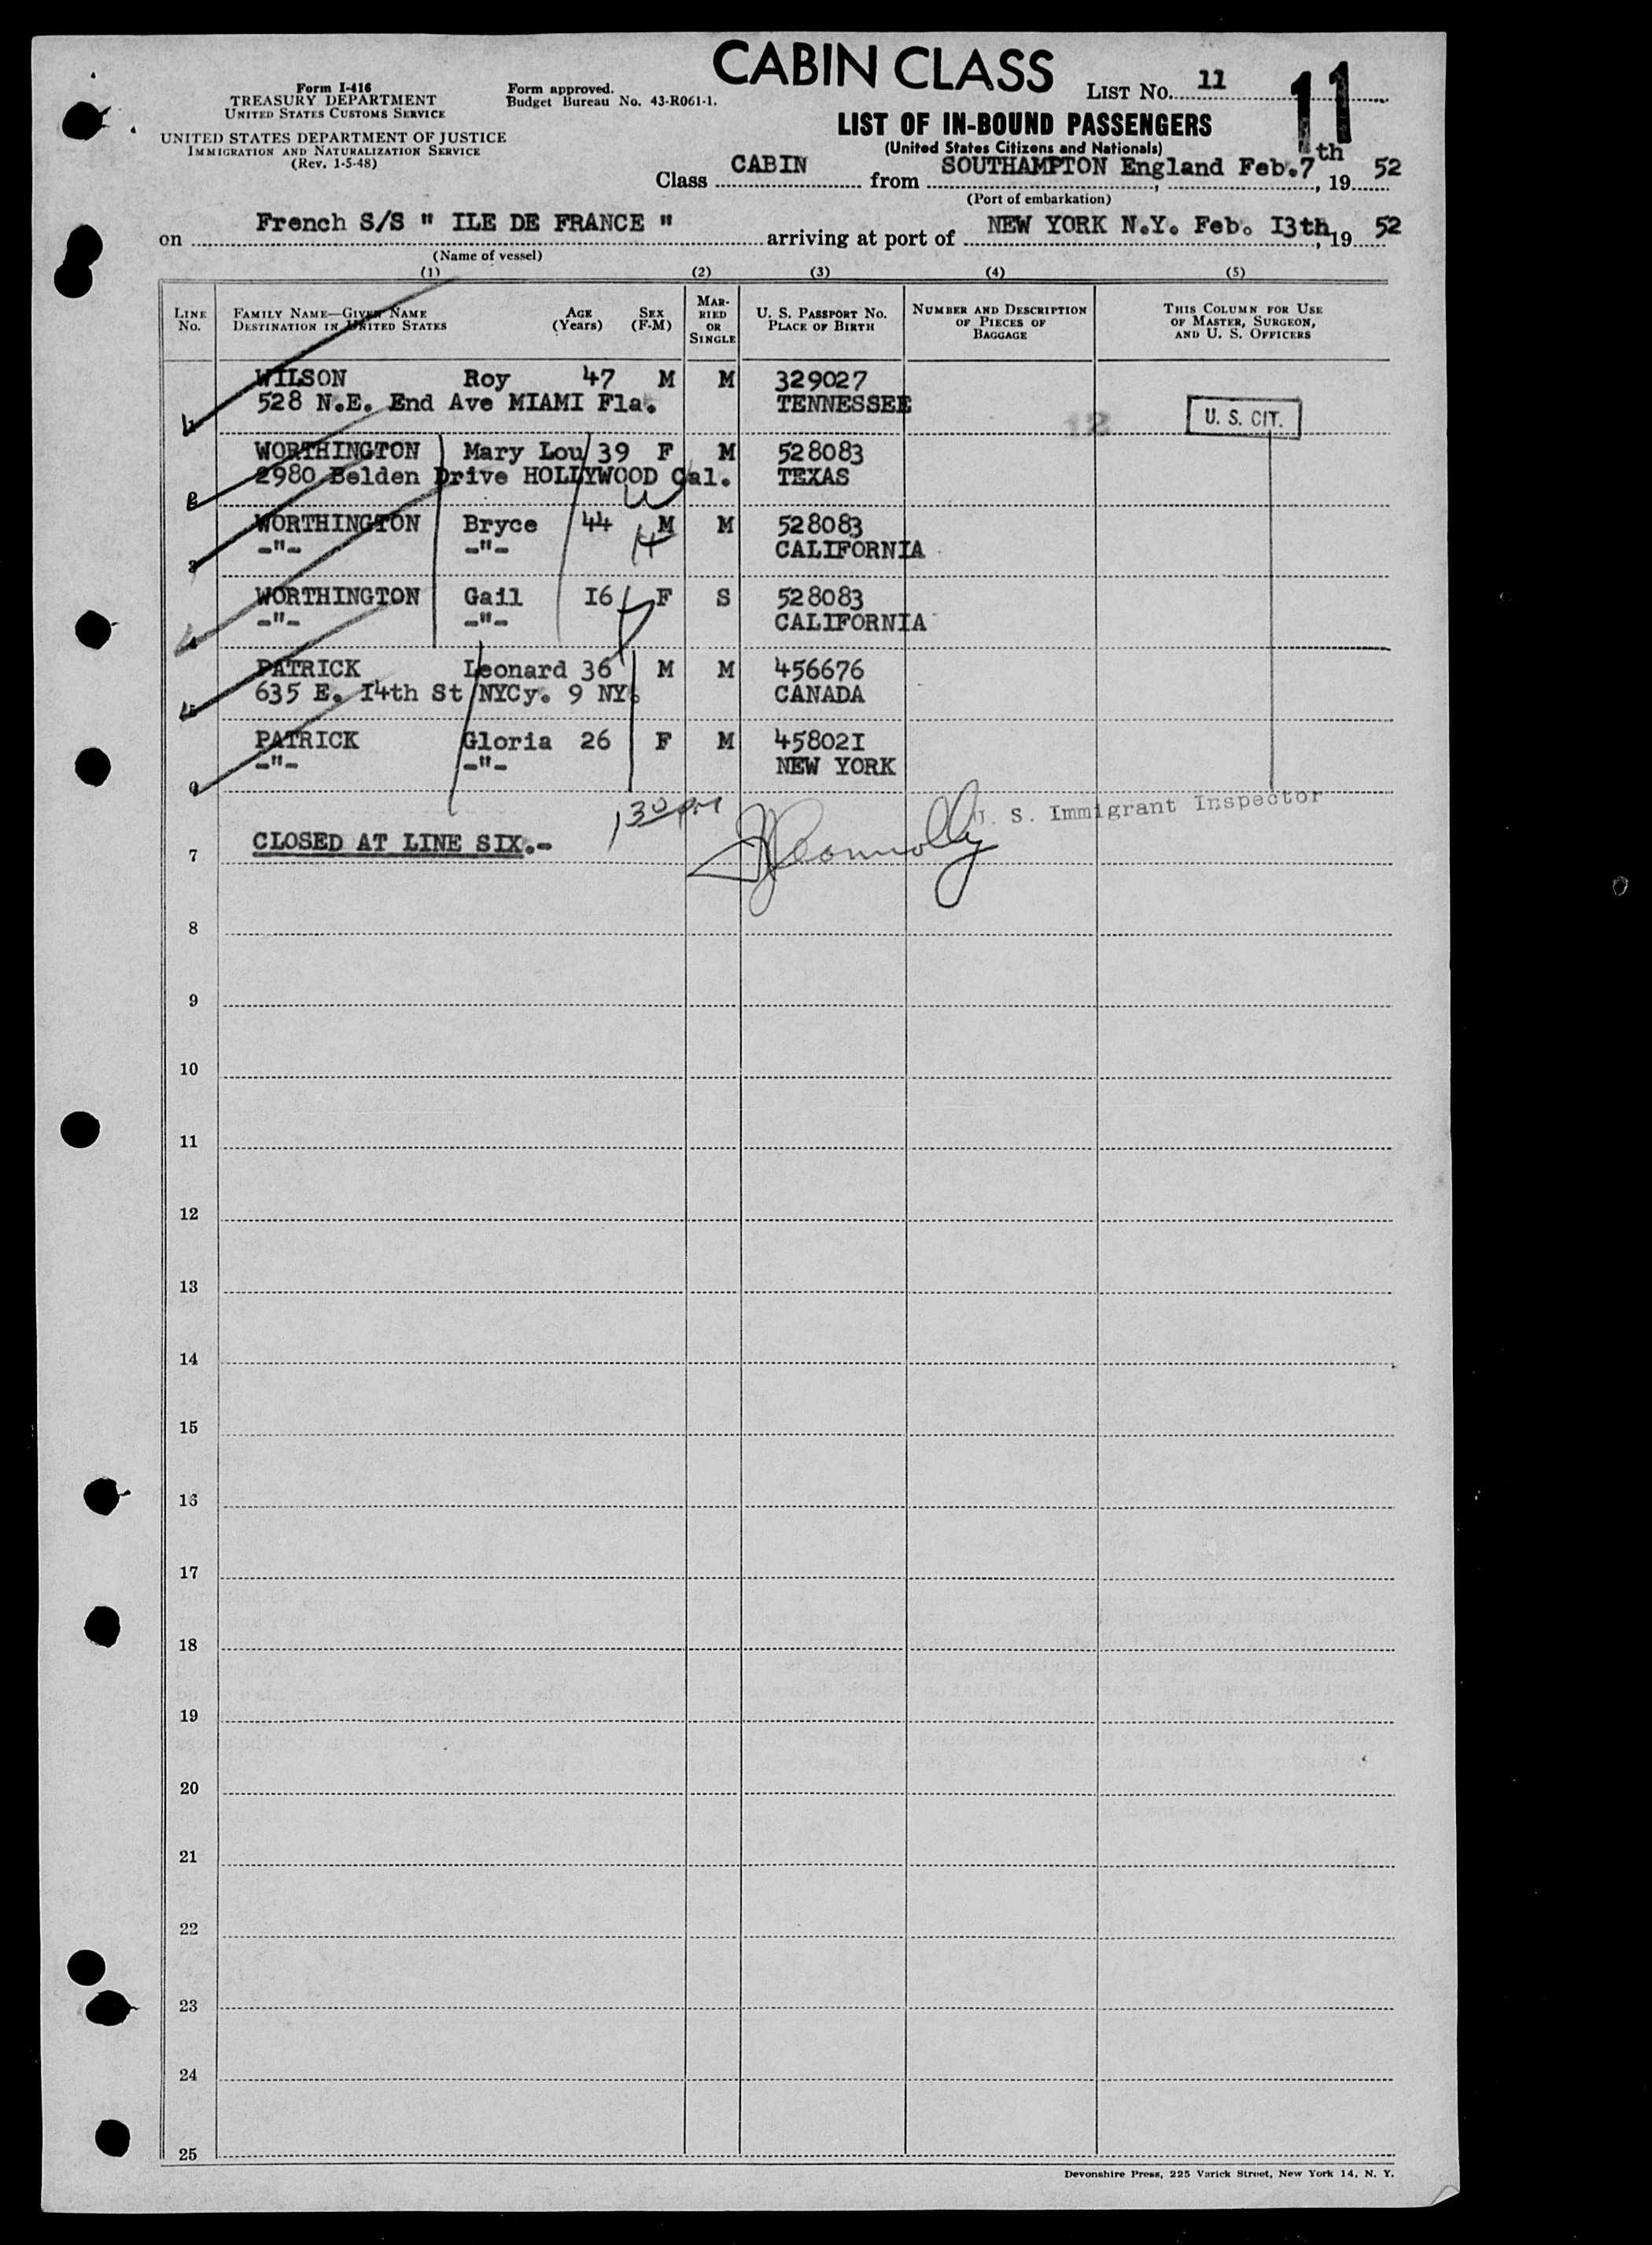 CABIN CLASS
Form I-416
TREASURY DEPARTMENT
UNITED STATES CUSTOMS SERVICE
Form approved.
Budget Bureau No. 43-R061-1.
LIST NO. 11
11
UNITED STATES DEPARTMENT OF JUSTICE
IMMIGRATION AND NATURALIZATION SERVICE
(Rev. 1-5-48)
LIST OF IN-BOUND PASSENGERS
(United States Citizens and Nationals)
Class CABIN from SOUTHAMPTON England Feb.7th, 19 52
(Port of embarkation)
on French S/S " ILE DE FRANCE " arriving at port of NEW YORK N.Y. Feb. I3th, 19 52
(Name of vessel)
(1) (2) (3) (4) (5)
LINE No.
FAMILY NAME—GIVEN NAME
DESTINATION IN UNITED STATES
AGE (Years)
SEX (F-M)
MARRIED OR SINGLE
U. S. PASSPORT NO.
PLACE OF BIRTH
NUMBER AND DESCRIPTION OF PIECES OF BAGGAGE
THIS COLUMN FOR USE OF MASTER, SURGEON, AND U. S. OFFICERS
1 WILSON Roy 47 M M 329027
528 N.E. End Ave MIAMI Fla. TENNESSEE
12
U. S. CIT.
2 WORTHINGTON Mary Lou 39 F M 528083
2980 Belden Drive HOLLYWOOD Cal. TEXAS
3 WORTHINGTON Bryce 44 M M 528083
-"- -"- CALIFORNIA
4 WORTHINGTON Gail I6 F S 528083
-"- -"- CALIFORNIA
5 PATRICK Leonard 36 M M 456676
635 E. I4th St NYCy. 9 NY. CANADA
6 PATRICK Gloria 26 F M 45802I
-"- -"- NEW YORK
130 PM
U. S. Immigrant Inspector
7 CLOSED AT LINE SIX.-
8
9
10
11
12
13
14
15
16
17
18
19
20
21
22
23
24
25
Devonshire Press, 225 Varick Street, New York 14, N. Y.